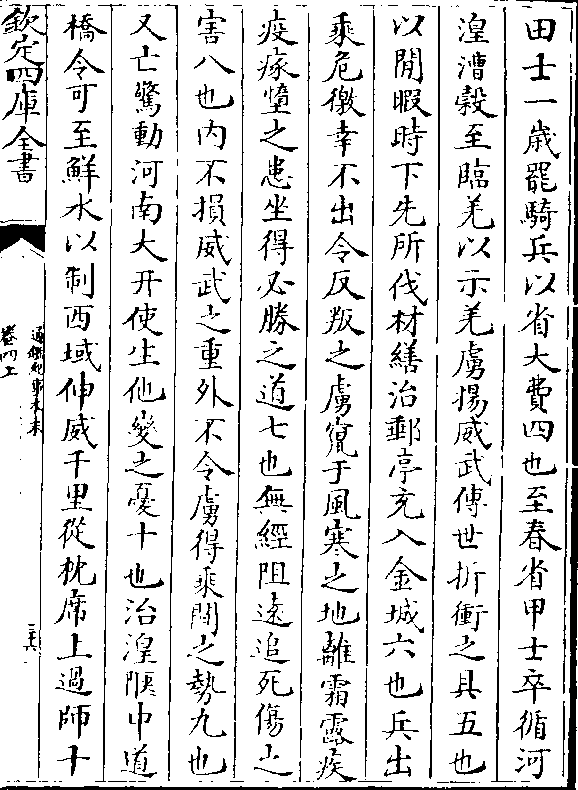 田士一歲罷騎兵以省大費四也至春省甲士卒循河
湟漕糓至臨羌以示羌虜揚威武傳世折衝之具五也
以閒暇時下先所伐材繕治郵亭充入金城六也兵出
乘危徼幸不出令反叛之虜竄于風寒之地離霜露疾
疫瘃墮之患坐得必勝之道七也無經阻逺追死傷之
害八也内不損威武之重外不令虜得乘間之勢九也
又亡驚動河南大幵使生他變之憂十也治湟陿中道
橋令可至鮮水以制西域伸威千里從枕席上過師十
欽定四庫全書
通鑑紀事本末
卷四上